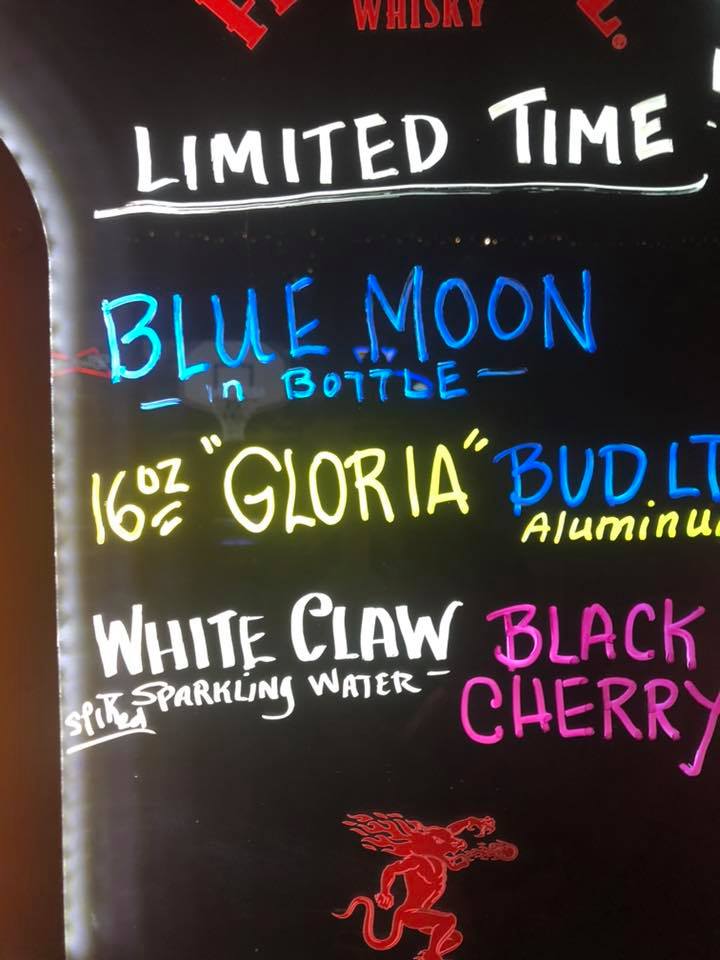 WHISKY
LIMITED TIME
BLUE MOON
- in BOTTLE -
16oz "GLORIA" BUD.LT
Aluminu
WHITE CLAW BLACK
spiked SPARKLING WATER - CHERRY